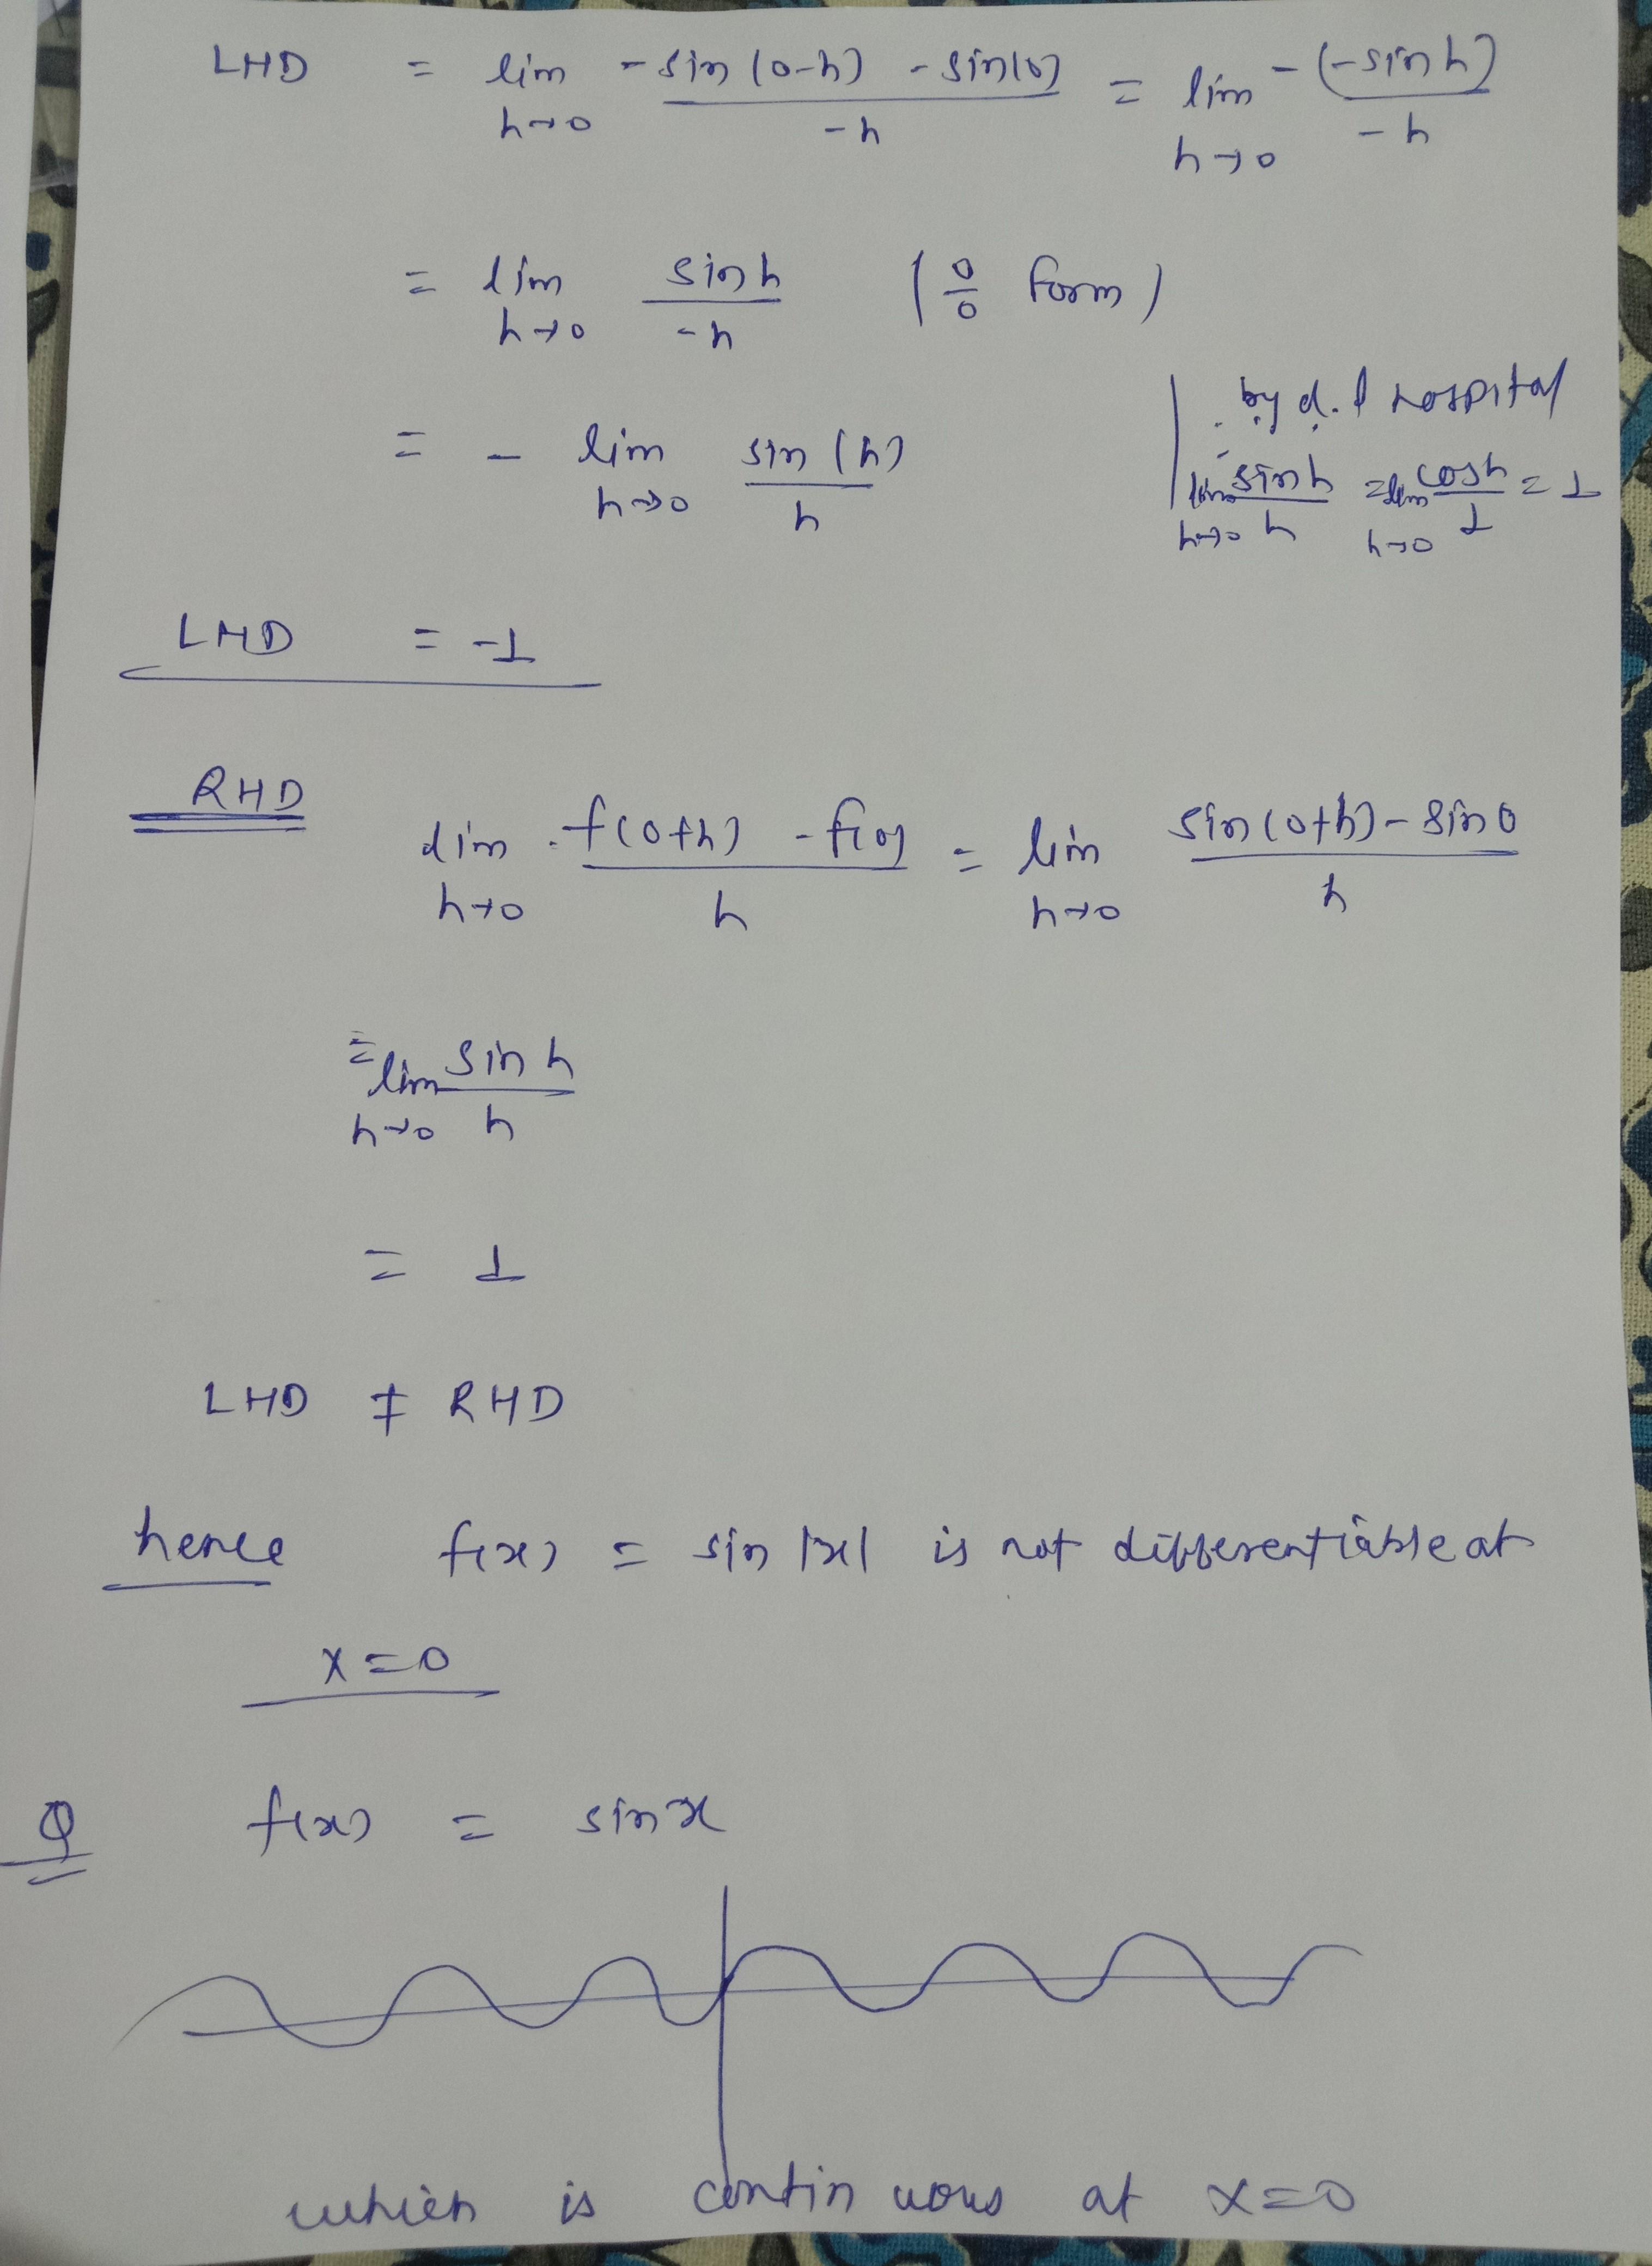 LHD = lim h→0 -sin(0-h) - sin(0) / -h = lim h→0 -(-sin h) / -h
= lim h→0 sin h / -h (0/0 form)
= - lim h→0 sin(h) / h
by d. l hospital
lim h→0 sin h / h = lim h→0 cos h / 1 = 1
LHD = -1
RHD
lim h→0 f(0+h) - f(0) / h = lim h→0 sin(0+h) - sin 0 / h
= lim h→0 sin h / h
= 1
LHD ≠ RHD
hence f(x) = sin |x| is not differentiable at
x=0
Q f(x) = sin x
which is continuous at x=0